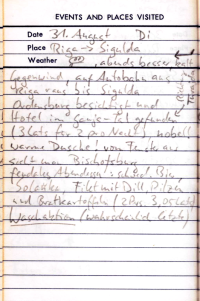 EVENTS AND PLACES VISITED
Date 31. August Di
Place Riga -> Sigulda
Weather , abends besser, kalt
Gegenwind, auf Autobahn aus
Riga raus bis Sigulda
Ordensburg besichtigt und
Hotel im Gauja-Tal gefunden
(3 Lats für 2 pro Nacht), nobel!
warme Dusche! vom Fenster aus
sieht man Bischofsburg
feudales Abendessen: Bier,
Soljanka, Filet mit Dill, Pilzen
und Bratkartoffeln (2 Pers. 3,05 Lats)
Waschaktion (wahrscheinlich letzte)